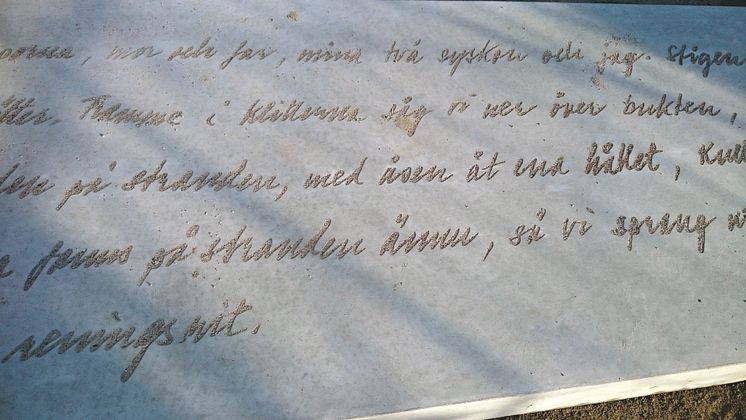 mor och far, mina två syskon och jag. Stigen
Framme i klitterna såg vi ner över bukten,
på stranden, med åsen åt ena hållet, Kull
fanns på stranden ännu, så vi sprang